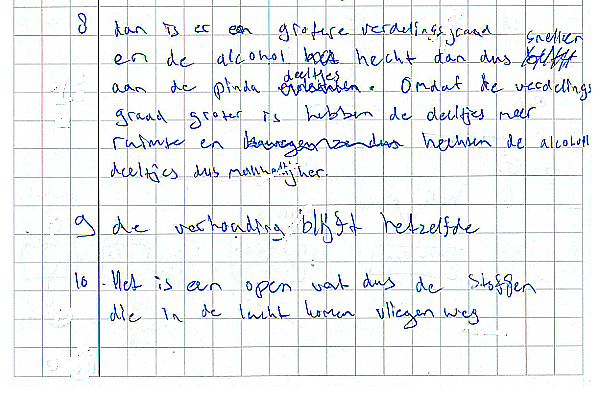 8 dan is er een grotere verdelingsgraad
en de alcohol hecht dan dus sneller
aan de pinda deeltjes. Omdat de verdelings
graad groter is hebben de deeltjes meer
ruimte en hechten de alcohol
deeltjes dus makkelijker.
9 de verhouding blijft hetzelfde
10 . Het is een open vat dus de stoffen
die in de lucht komen vliegen weg